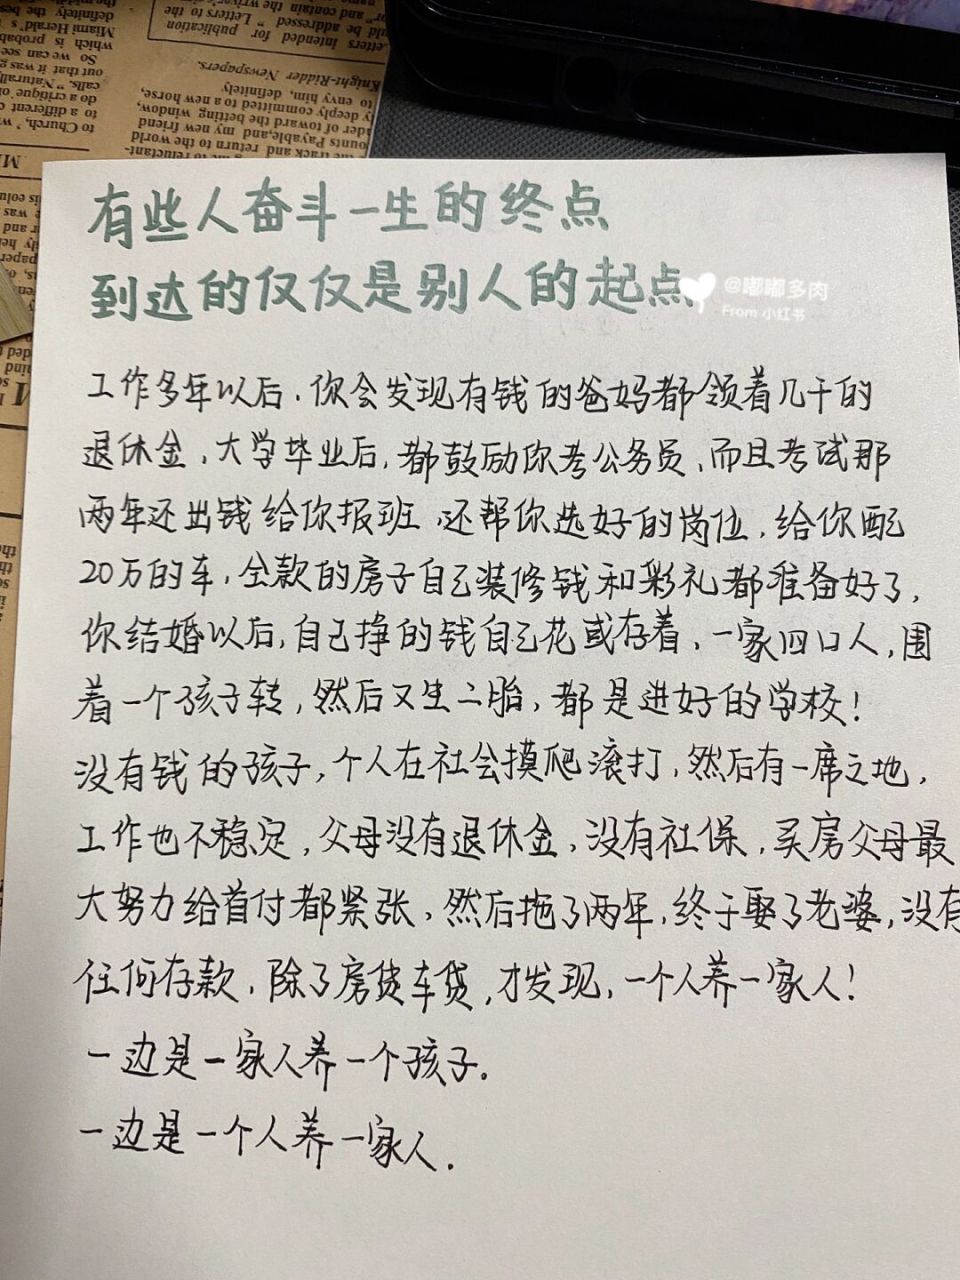 有些人奋斗一生的终点
到达的仅仅是别人的起点
@嘟嘟多肉
From 小红书
工作多年以后，你会发现有钱的爸妈都领着几千的
退休金，大学毕业后，都鼓励你考公务员，而且考试那
两年还出钱给你报班，还帮你选好的岗位，给你配
20万的车，全款的房子自己装修钱和彩礼都准备好了，
你结婚以后，自己挣的钱自己花或存着，一家四口人，围
着一个孩子转，然后又生二胎，都是进好的学校！
没有钱的孩子，个人在社会摸爬滚打，然后有一席之地，
工作也不稳定，父母没有退休金，没有社保，买房父母最
大努力给首付都紧张，然后拖了两年，终于娶了老婆，没有
任何存款，除了房贷车贷，才发现，一个人养一家人！
一边是一家人养一个孩子．
一边是一个人养一家人．
Letters intended for publication
Knight-Ridder Newspapers.
to envy him, definitely
ly deeply committed to a new horse,
ider of toward the betting window,
ounts Payable, and my new friend
track and return to the world
Miami Herald's
which is probab
So we can see
out that it was g
calls. "Naturall
do a critique of
to a different c
to "Church, w